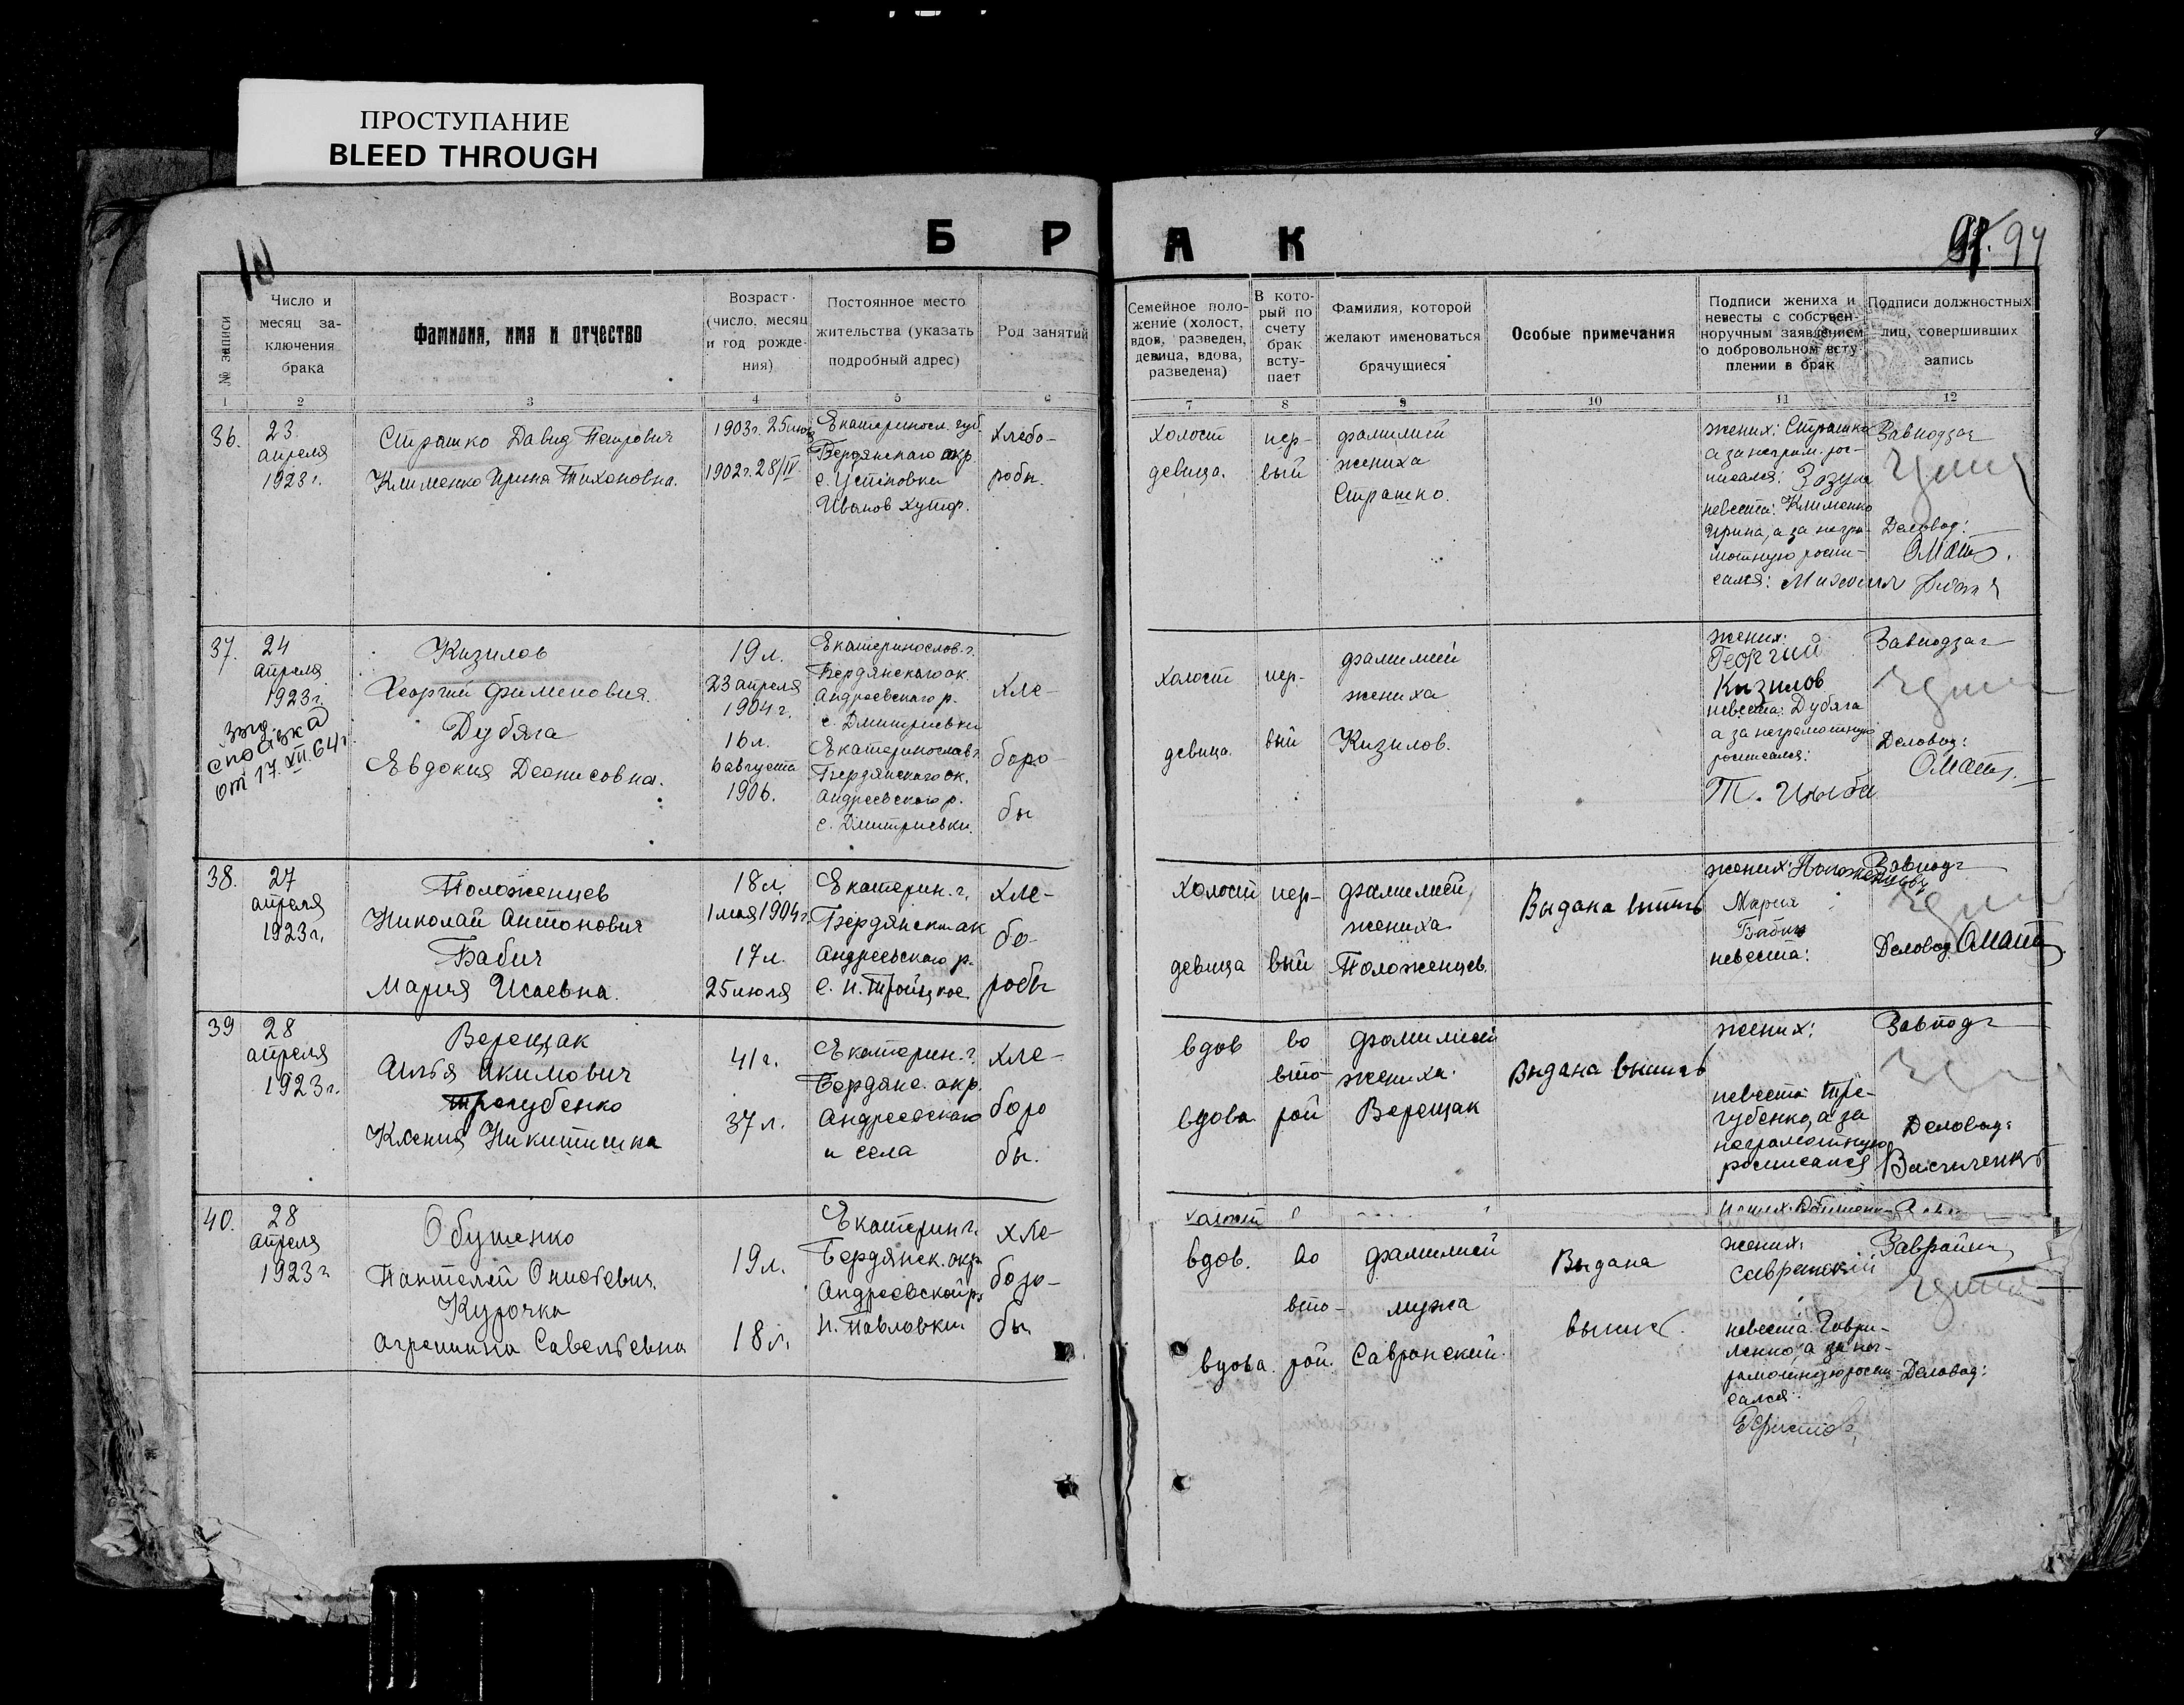 ПРОСТУПАНИЕ
BLEED THROUGH
Б Р А К
94
№ записи
Число и месяц за-ключения брака
Фамилия, имя и отчество
Возраст (число, месяц и год рожде-ния)
Постоянное место жительства (указать подробный адрес)
Род занятий
Семейное поло-жение (холост, вдов, разведен, девица, вдова, разведена)
В кото-рый по счету брак всту-пает
Фамилия, которой желают именоваться брачущиеся
Особые примечания
Подписи жениха и невесты с собствен-норучным заявлением о добровольном всту-плении в брак
Подписи должностных лиц, совершивших запись
1 2 3 4 5 6 7 8 9 10 11 12
36.
23.
апреля
1923 г.
Страшко Давид Петрович
Клименко Ирина Тихоновна.
1903 г. 25 июля
1902 г. 28/IV
Екатериносл. губ.
Бердянскаго окр.
Иванов хутор.
Хлебо-
робы.
холост
девица.
пер-
вый
фамилией
жениха
Страшко.
жених: Страшко
а за неграм. рос-
писался:
невеста: Клименко
Ирина, а за негра-
мотную роспи-
сался: Михаил
Завподзаг
Деловод:
37.
24
апреля
1923 г.
от 17.XII.64 г.
Кизилов
Георгий Филипович.
Дубяга
Евдокия Деонисовна.
19 л.
23 апреля
1904 г.
16 л.
6 августа
1906.
Екатеринослов. г.
Бердянского ок.
Андреевского р.
с. Дмитриевки
Екатеринослав г.
Бердянского ок.
Андреевского р.
с. Дмитриевки.
Хле-
боро-
бы
холост
девица.
пер-
вый
фамилией
жениха
Кизилов.
жених:
Георгий
Кизилов
невеста: Дубяга
а за неграмотную
росписался:
Завподзаг
Деловод:
38.
27
апреля
1923 г.
Положенцев
Николай Антонович
Бабич
Мария Исаевна.
18 л.
1 мая 1904 г.
17 л.
25 июля
Екатерин. г.
Бердянск ок
Андреевского р.
с. Н. Тройцкое
хле-
бо-
робы
холост
девица
пер-
вый
фамилией
жениха
Положенцев.
Выдана
жених: Положенцев
Мария
Бабич
невеста:
Завподг
Деловод
39
28
апреля
1923 г.
Верещак
Илья Акимович
Трегубенко
Ксения Никитишна
41 г.
37 л.
Екатерин. г.
Бердянс. окр.
Андреевского
и села
хле-
боро
бы.
вдов
вдова
во
вто-
рой
фамилией
жениха
Верещак
Выдана выпись
жених:
невеста Тре-
губенко, а за
неграмотную
росписался
Завподг
Деловод:
Василенко
40.
28
апреля
1923 г
Обушенко
Пантелей Онисеевич.
Курочка
Агрепина Савельевна
19 л.
18 л.
Екатерин г.
Бердянск. окр.
Андреевской р.
Н. Павловки
хле-
боро-
бы
холост
вдов.
вдова.
во
вто-
рой.
фамилией
мужа
Савранский.
Выдана
выпись.
жених:
Савранский
невеста: Гаври-
ленко, а за нег-
рамотную роспи-
сался:
Деловод: